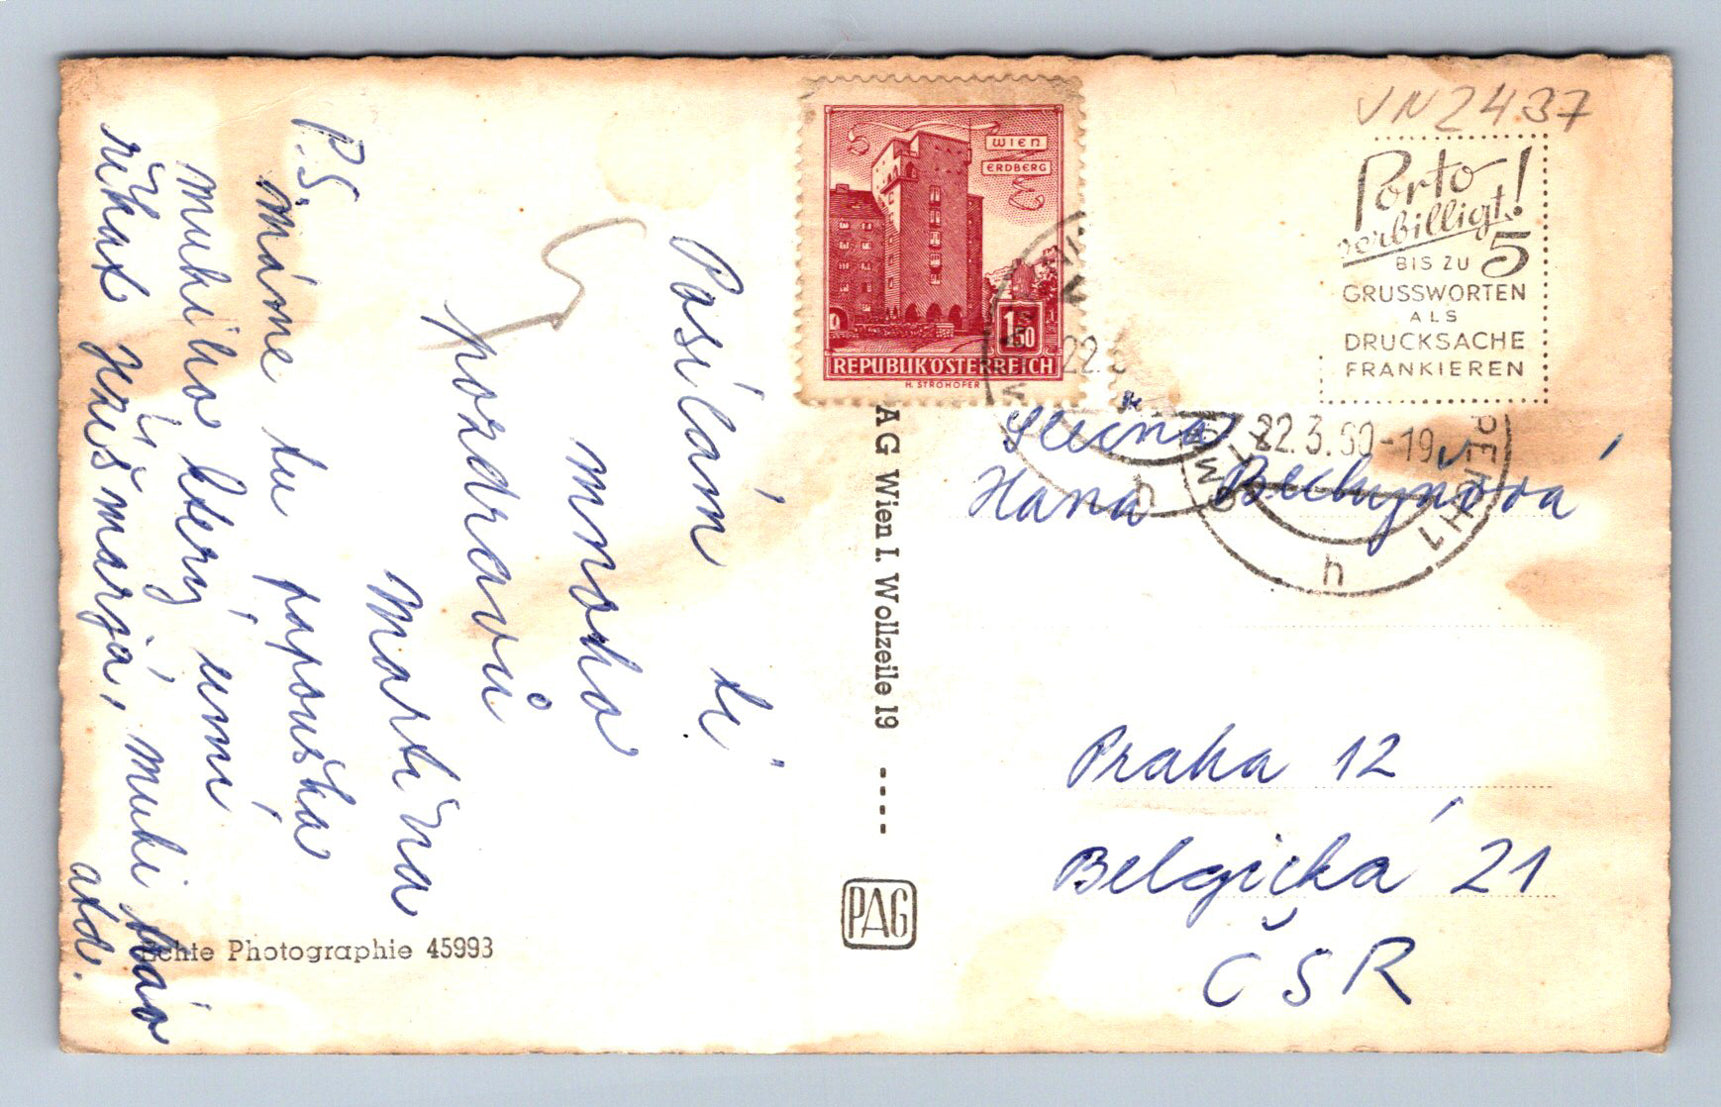 Posílám ti
mnoho
pozdravů
Martina
P.S.
máme tu papouška
mukiho který umí
říkat Ježišmarja, muki
atd.
Echte Photographie 45993
PAG Wien I. Wollzeile 19
PAG
WIEN
ERDBERG
1 50
REPUBLIK ÖSTERREICH
H. STROHOFER
VN2437
Porto
verbilligt!
BIS ZU 5
GRUSSWORTEN
ALS
DRUCKSACHE
FRANKIEREN
22.3.60-19
Slečna
Hana Bechyňová
Praha 12
Belgická 21
ČSR